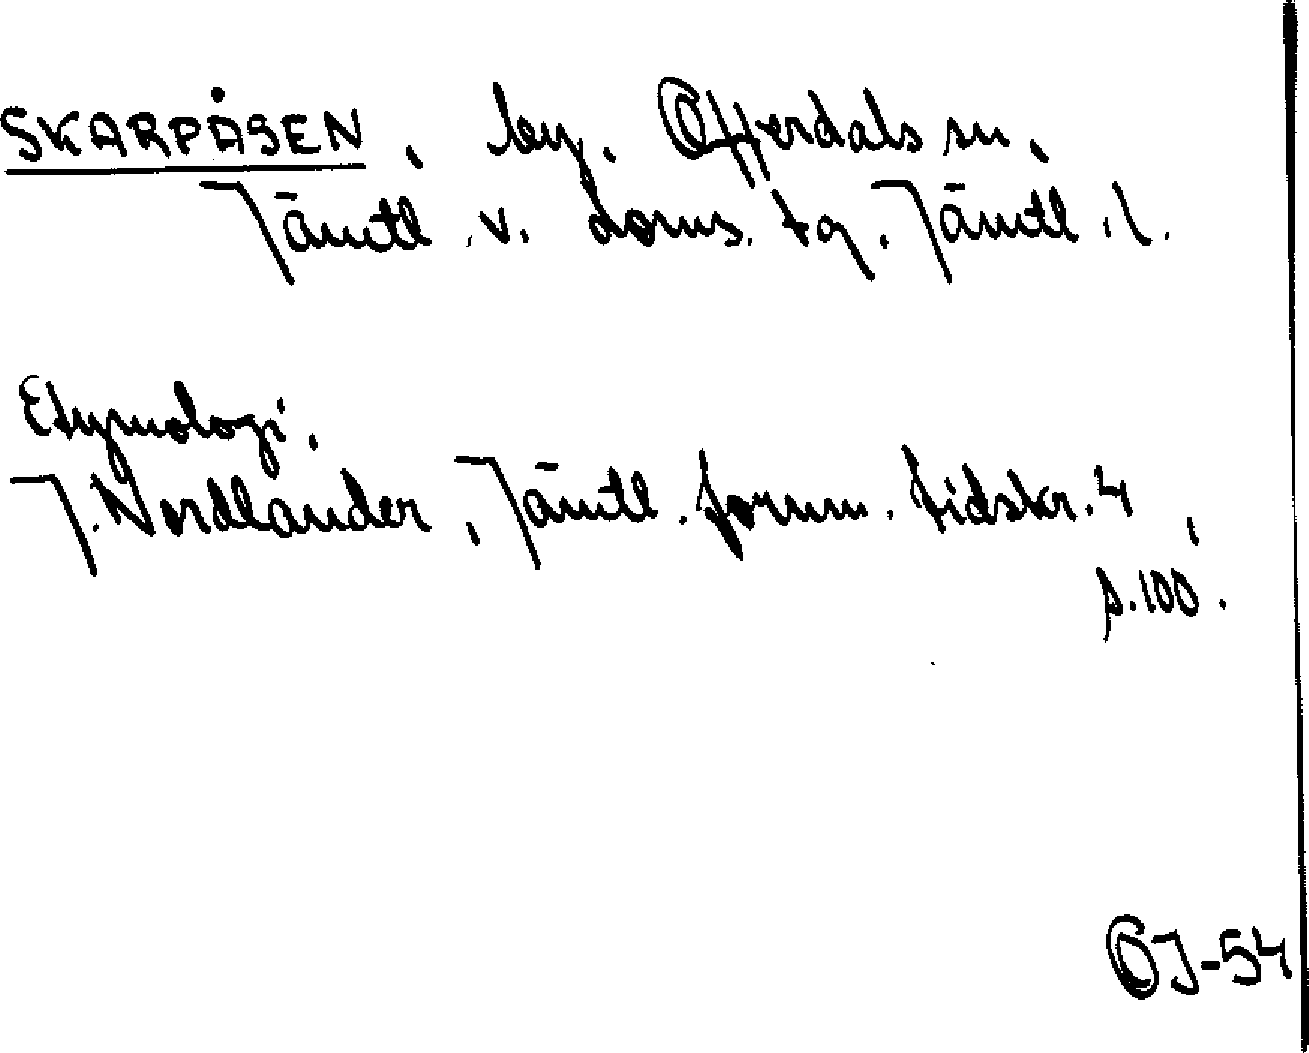 SKARPÅSEN, by. Offerdals sn,
Jämtl. v. doms. tg. Jämtl. l.
Etymologi.
J. Nordlander, Jämtl. fornm. tidskr. 4,
s. 100.
OJ-54